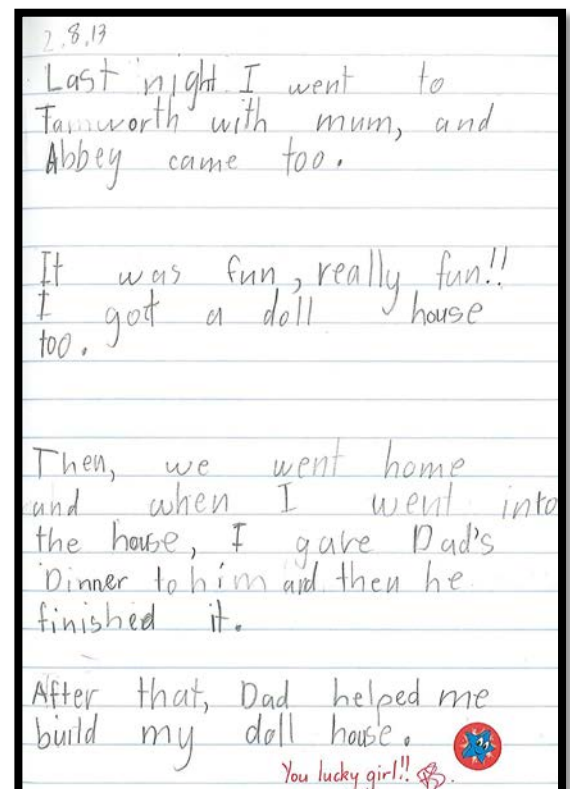 2,8,13
Last night I went to
Tamworth with mum, and
Abbey came too.
It was fun, really fun!!
I got a doll house
too.
Then, we went home
and when I went into
the house, I gave Dad's
Dinner to him and then he
finished it.
After that, Dad helped me
build my doll house.
You lucky girl!!